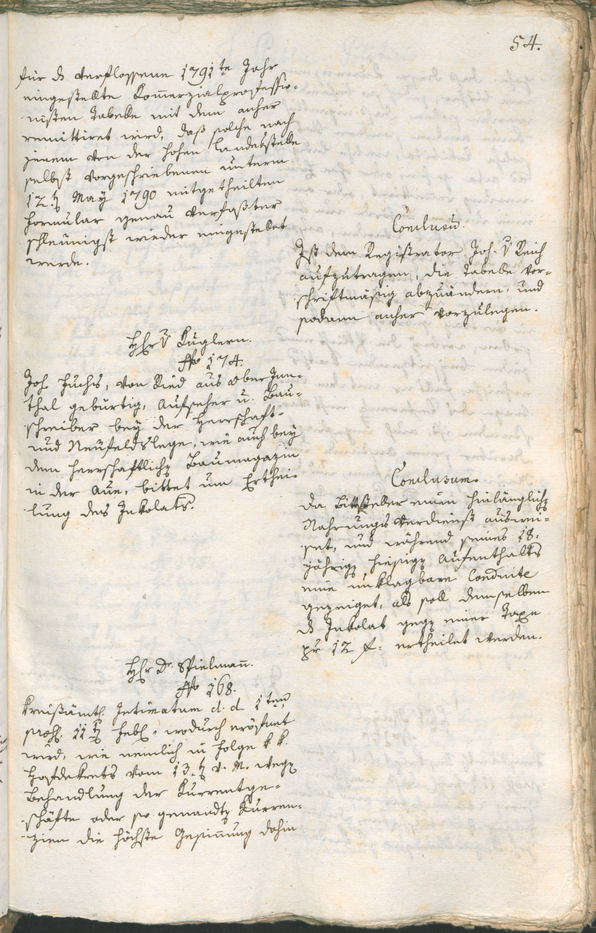 54.
für d verflossene 1791te Jahr
eingestellte Commerzialprofessio-
nisten Tabelle mit dem anher
remittiret wird, daß solche nach
jenem von der hohen Landesstelle
selbst vorgeschriebenen unterm
12.t May 1790 mitgetheilten
Formular genau verfaßter
schleunigst wieder eingestellet
werde.
Conclusum.
Ist dem Registrator Joh. v Reich
aufzutragen, die Tabelle vor-
schriftmäßig abzuändern, und
sodann anher vorzulegen.
H Hr v Kuglern.
No 174.
Joh. Fuchs, von Ried aus Ober Inn-
thal gebürtig, Aufseher u. Bau-
schreiber bey der Herrschaft-
und Neufeldslege, wie auch bey
dem herrschaftlich Baumagazin
in der Aue, bittet um Erthei-
lung des Inkolats.
Conclusum.
Da Bittsteller einen hinlänglich
Nahrungs Verdienst auswei-
set, und während seines 18.
jährig hiesig Aufenthalts
eine unklagbare Conduite
gezeiget, als soll demselben
d Inkolat geg einer Taxe
pr 12 f. ertheilet werden.
H Hr Dr. Spielmann.
No 168.
Kreisämtl. Intimatum d. d. 1ten,
praes. 11t Febl. wodurch eröfnet
wird, wie nemlich in Folge k k.
Hofdekrets vom 13.t v. M. weg
Behandlung der Currentge-
schäfte oder so genandt Curren-
zien die höchste Gesinnung dahin